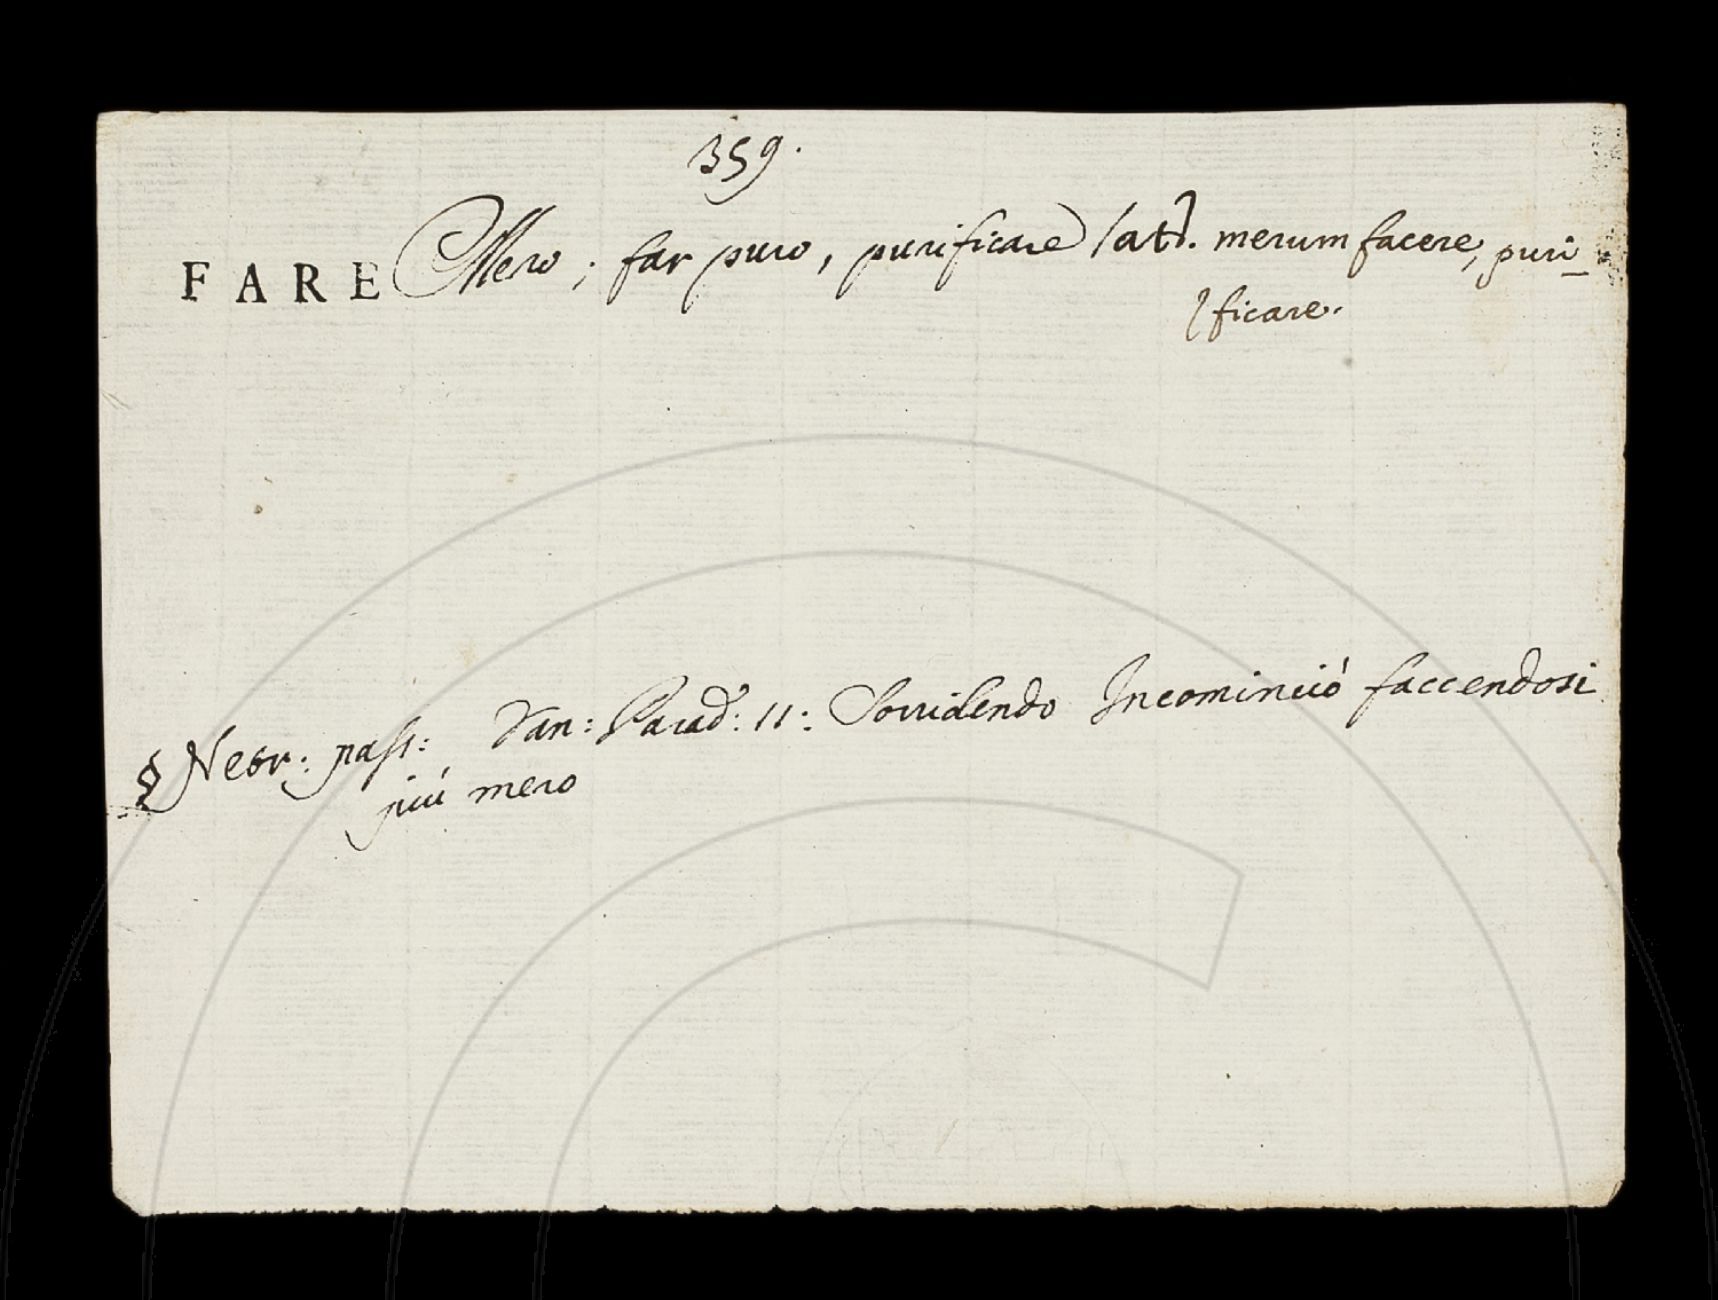 359.
FARE Mero; far puro, purificare lat. merum facere, puri-
ficare.
§ Neutr: pass: Dan: Parad: 11: Sorridendo Incominciò faccendosi
più mero